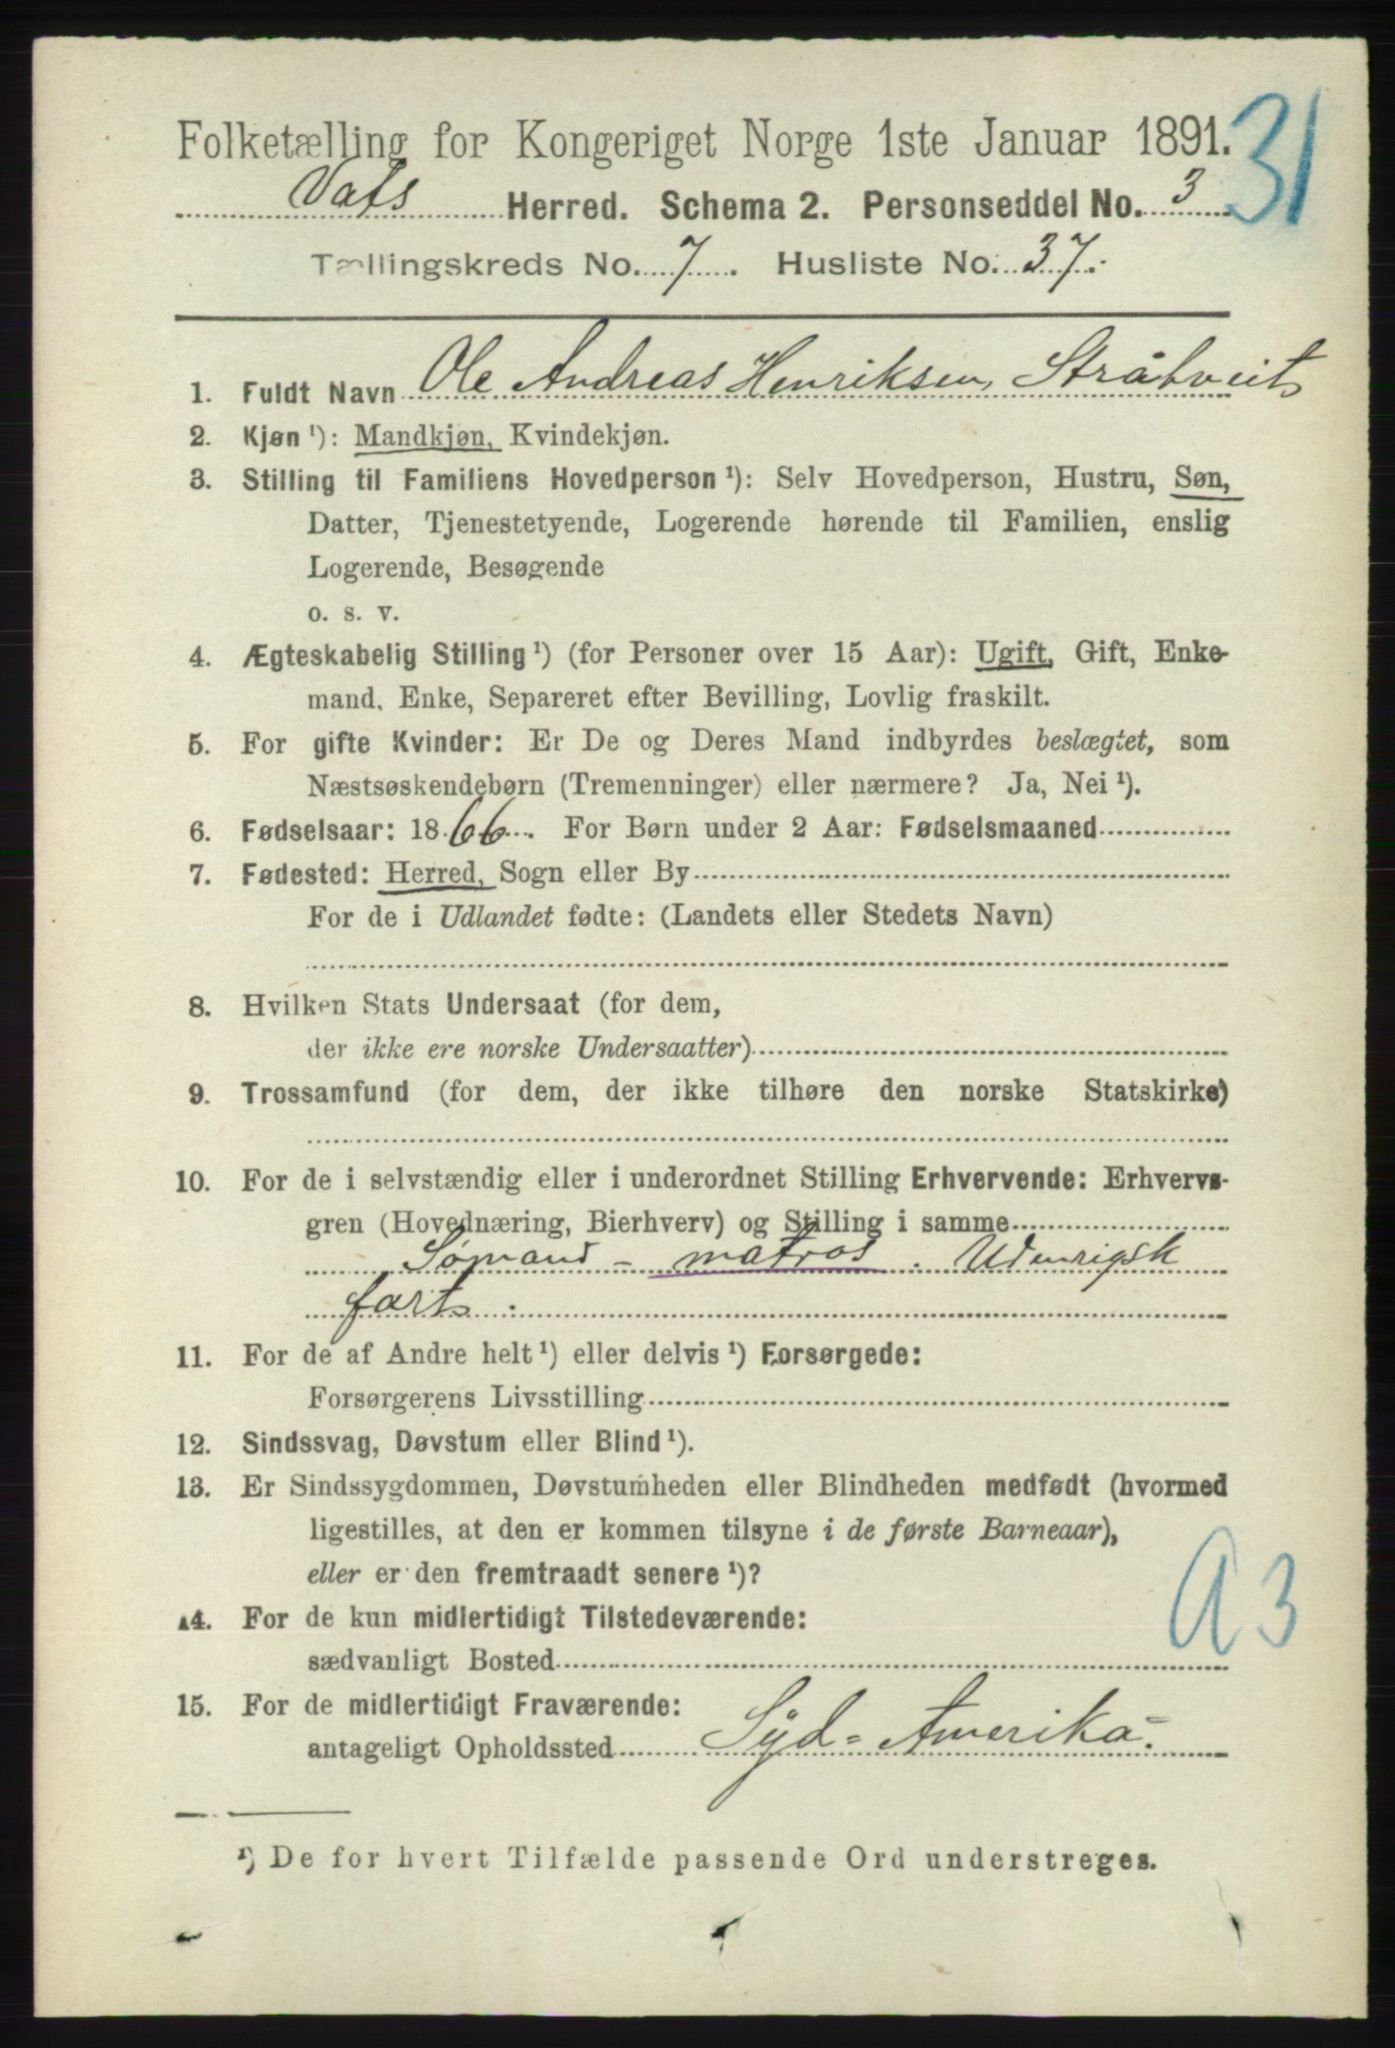 Folketælling for Kongeriget Norge 1ste Januar 1891.
31
Vats Herred. Schema 2. Personseddel No. 3
Tællingskreds No. 7. Husliste No. 37.
1. Fuldt Navn Ole Andreas Henriksen Stråtveit
2. Kjøn ¹): Mandkjøn, Kvindekjøn.
3. Stilling til Familiens Hovedperson ¹): Selv Hovedperson, Hustru, Søn,
Datter, Tjenestetyende, Logerende hørende til Familien, enslig
Logerende, Besøgende
o. s. v.
4. Ægteskabelig Stilling ¹) (for Personer over 15 Aar): Ugift, Gift, Enke-
mand, Enke, Separeret efter Bevilling, Lovlig fraskilt.
5. For gifte Kvinder: Er De og Deres Mand indbyrdes beslægtet, som
Næstsøskendebørn (Tremenninger) eller nærmere? Ja, Nei ¹).
6. Fødselsaar: 1866. For Børn under 2 Aar: Fødselsmaaned
7. Fødested: Herred, Sogn eller By
For de i Udlandet fødte: (Landets eller Stedets Navn)
8. Hvilken Stats Undersaat (for dem,
der ikke ere norske Undersaatter)
9. Trossamfund (for dem, der ikke tilhøre den norske Statskirke)
10. For de i selvstændig eller i underordnet Stilling Erhvervende: Erhvervs-
gren (Hovednæring, Bierhverv) og Stilling i samme
Sømand - matros. Udenrigsk
fart.
11. For de af Andre helt ¹) eller delvis ¹) Forsørgede:
Forsørgerens Livsstilling
12. Sindssvag, Døvstum eller Blind ¹).
13. Er Sindssygdommen, Døvstumheden eller Blindheden medfødt (hvormed
ligestilles, at den er kommen tilsyne i de første Barneaar),
eller er den fremtraadt senere ¹)?
a 3
14. For de kun midlertidigt Tilstedeværende:
sædvanligt Bosted
15. For de midlertidigt Fraværende:
antageligt Opholdssted Syd=Amerika.
¹) De for hvert Tilfælde passende Ord understreges.